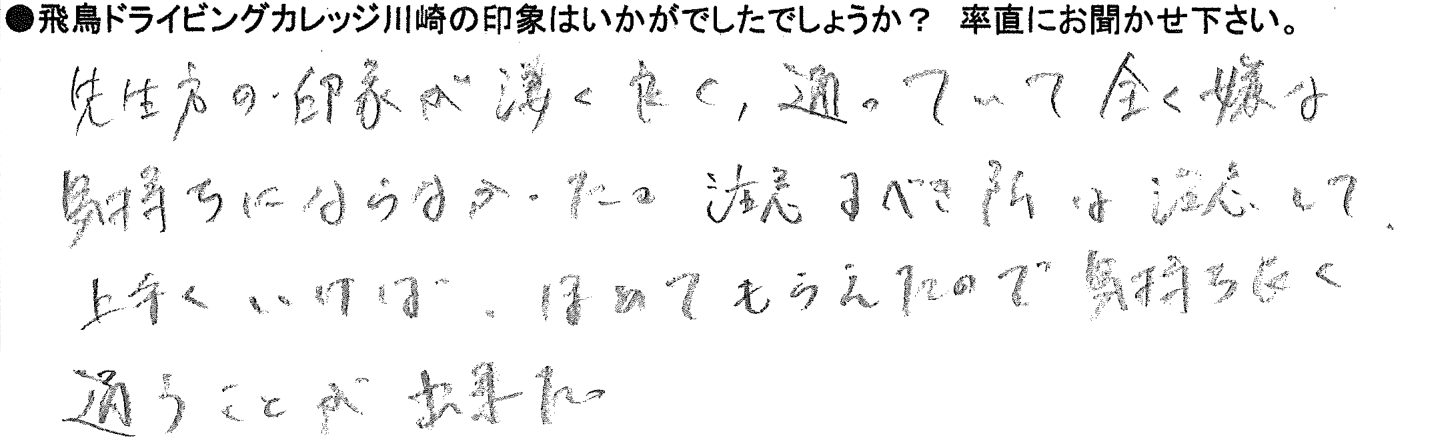 ●飛鳥ドライビングカレッジ川崎の印象はいかがでしたでしょうか？ 率直にお聞かせ下さい。
先生方の印象が凄く良く，通っていて全く嫌な
気持ちにはならなかった。注意するべき所は注意して、
上手くいけば、ほめてもらえたので気持ち良く
通うことが出来た。